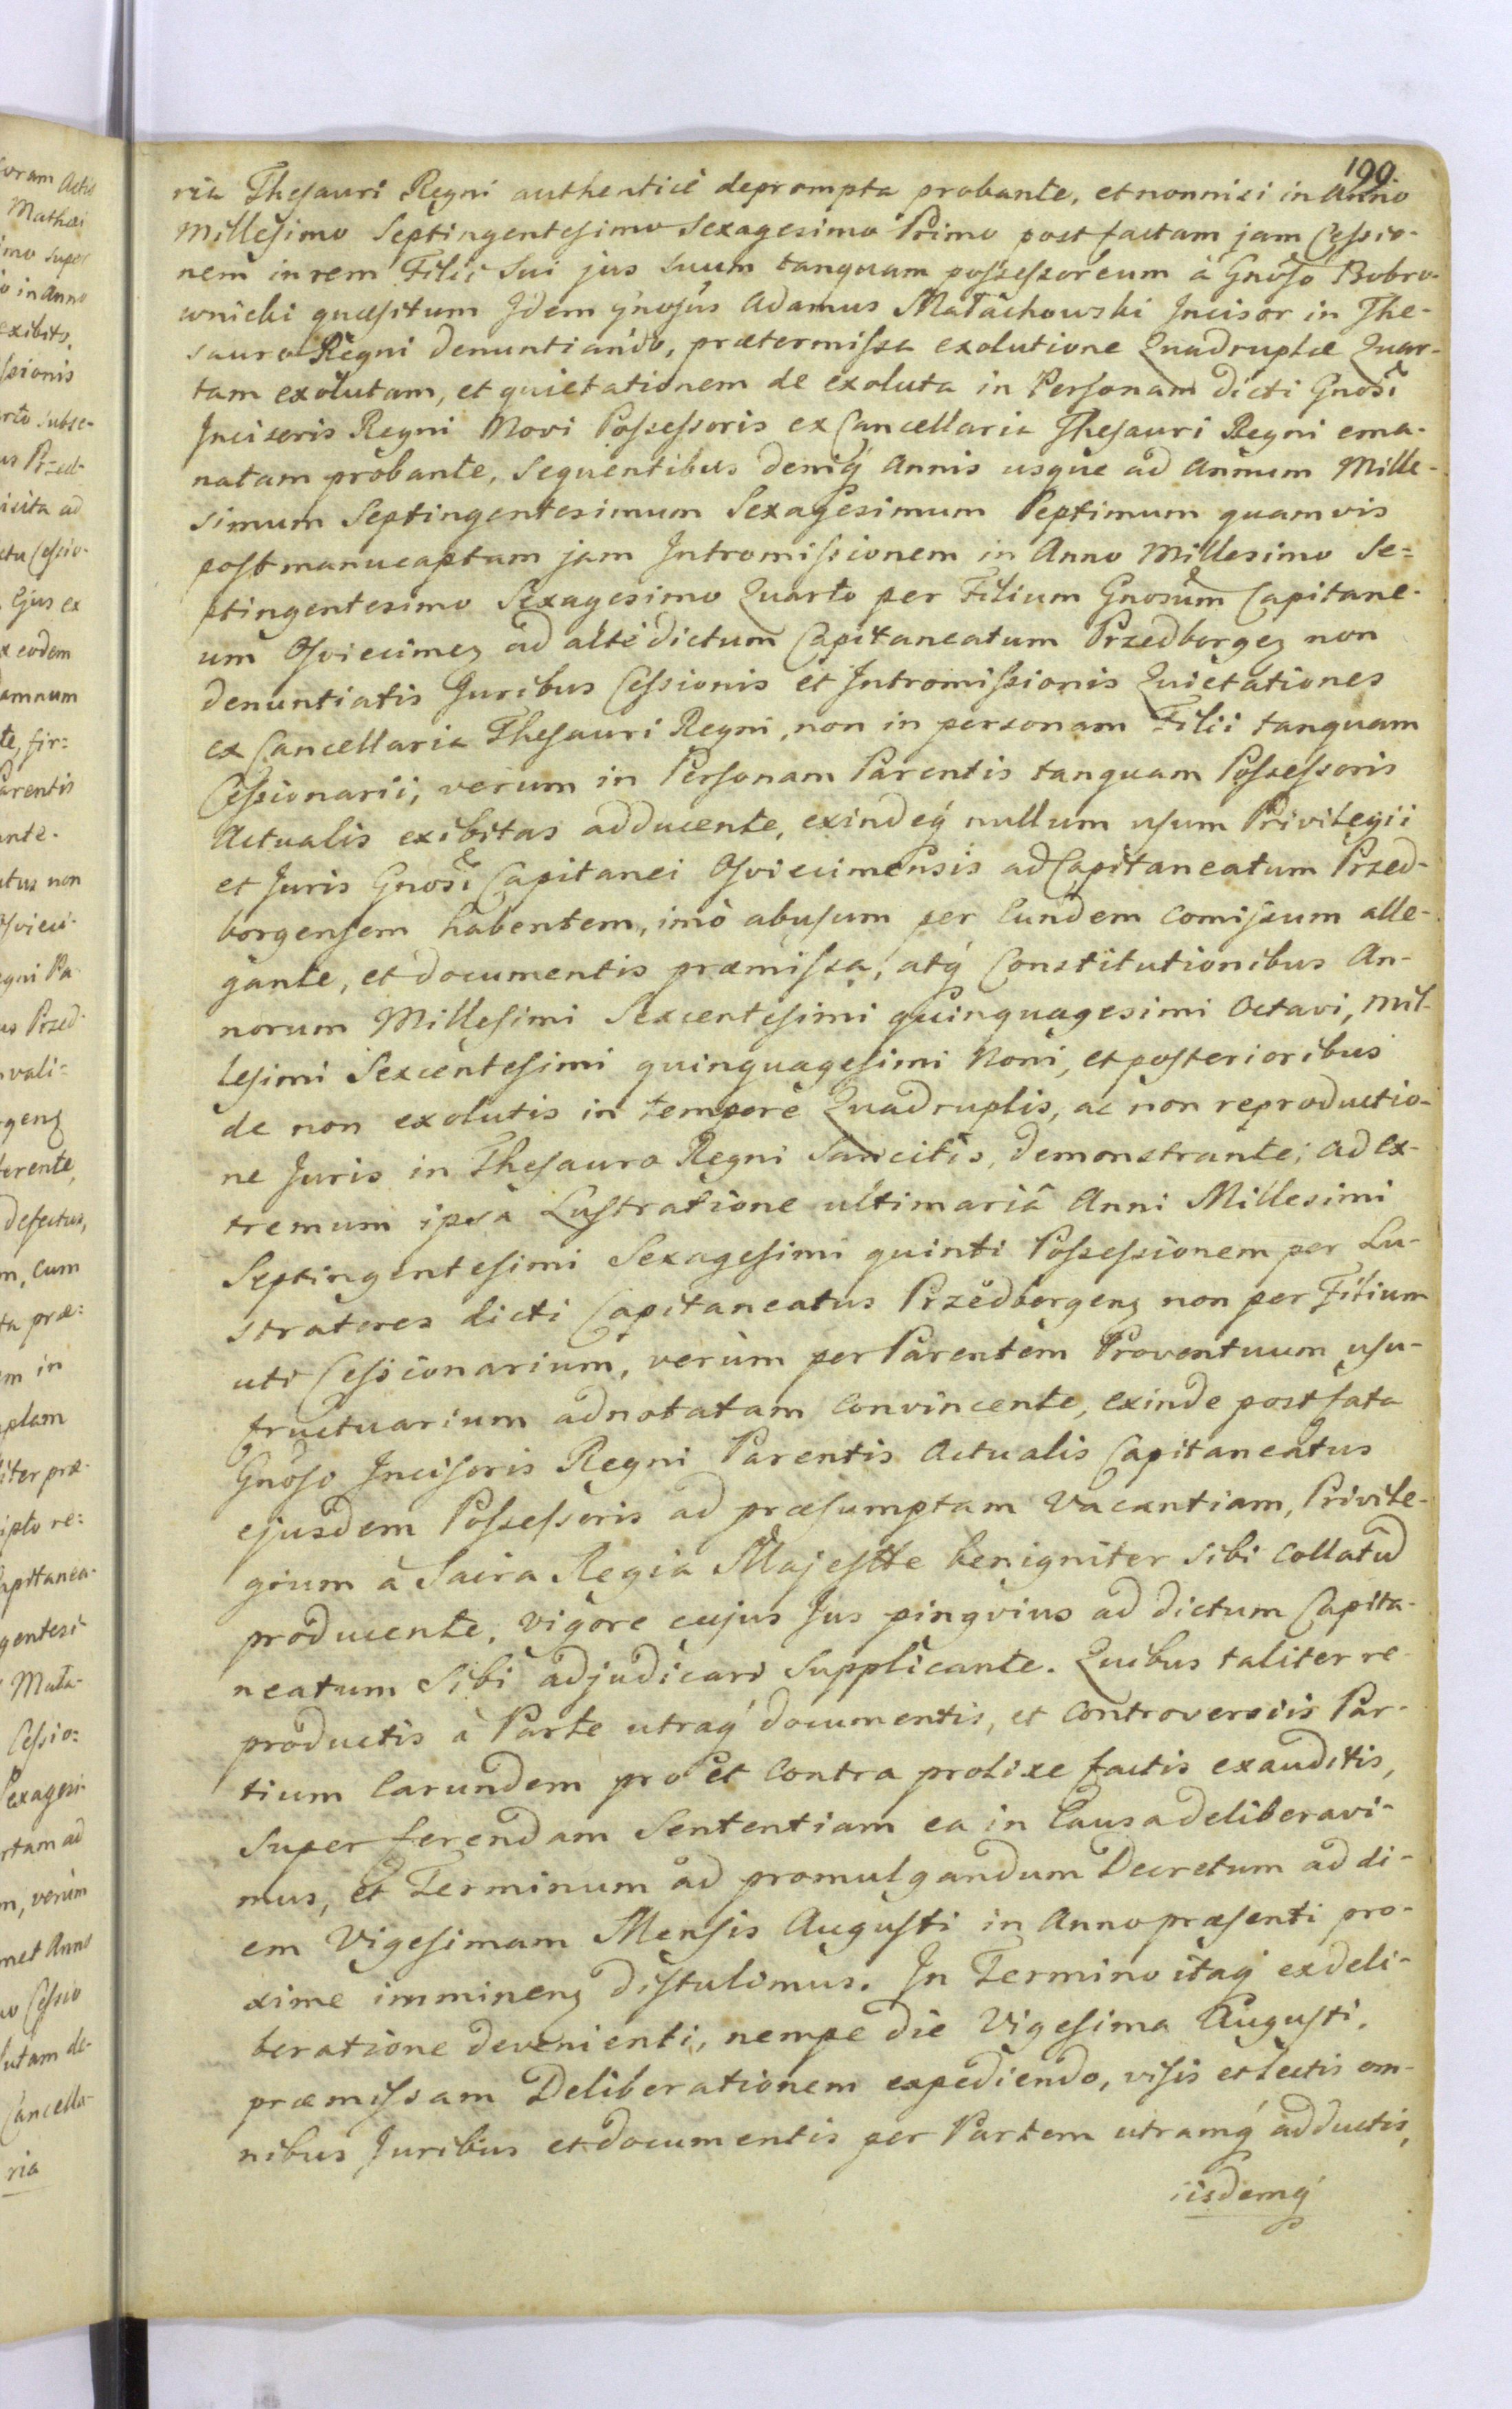 199.
ria Thesauri Regni authenticè deprompta probante, et nonnisi in Anno
Millesimo Septingentesimo Sexagesimo Primo post factam jam Cessio-
nem in rem Filii Sui jus suum tanquam possessoreum à Gnoso Bobro-
wnicki quæsitum Idem Gnosus Adamus Małachowski Incisor in The-
sauro Regni denuntiando, prætermissa exolutione Quadruplæ Quar-
tam exolutam, et quietationem de exoluta in Personam dicti Gnosi
Incisoris Regni Novi Possessoris ex Cancellaria Thesauri Regni ema-
natam probante, Sequentibus deniq́ Annis usque ad Annum Mille-
simum Septingentesimum Sexagesimum Septimum quamvis
post manucaptam jam Intromissionem in Anno Millesimo Se=
ptingentesimo Sexagesimo Quarto per Filium Gnosum Capitane-
um Osviecimeң ad altè dictum Capitaneatum Przedborgeң non
denuntiatis Juribus Cessionis et Intromissionis Quietationes
ex Cancellaria Thesauri Regni, non in personam Filii tanquam
Cessionarii, verum in Personam Parentis tanquam Possessoris
Actualis exibitas adducente, exindeq́ nullum usum Privilegii
et Juris Gnosi Capitanei Osviecimensis ad Capitaneatum Przed-
borgensem habentem, imò abusum per Eundem Comissum alle-
gante, et documentis præmissa, atq́ Constitutionibus An-
norum Millesimi Sexcentesimi quinquagesimi Octavi, Mil-
lesimi Sexcentesimi quinquagesimi Noni, et posterioribus
de non exolutis in tempore Quadruplis, ac non reproductio-
ne Juris in Thesauro Regni Sancitis, demonstrante; ad ex-
tremum ipsa Lustratione ultimaria Anni Millesimi
Septingentesimi Sexagesimi quinti Possessionem per Lu-
stratores dicti Capitaneatus Przedborgeң non per Filium
uti Cessionarium, verùm per Parentem Proventuum usu-
fructuarium adnotatam Convincente, exinde post fata
Gnoso Incisoris Regni Parentis Actualis Capitaneatus
ejusdem Possessoris ad præsumptam Vacantiam, Privile-
gium à Sacra Regia Majestte benigniter sibi Collatũd
producente, vigore cujus Jus pingvius ad dictum Capita-
neatum Sibi adjudicari Supplicante. Quibus taliter re-
productis à Parte utraq́ documentis, et Controversiis Par-
tium Earundem pro et Contra prolixe factis exauditis,
Super ferendam Sententiam ea in Causa deliberavi-
mus, et Terminum ad promulgandum Decretum ad di-
em Vigesimam Mensis Augusti in Anno præsenti pro-
xime immineң distulimus. In Termino itaq́ ex deli-
beratione devenienti, nempe die Vigesima Augusti,
præmissam Deliberationem expediendo, visis et lectis om-
nibus Juribus et documentis per Partem utramq́ adductis,
iisdemq́